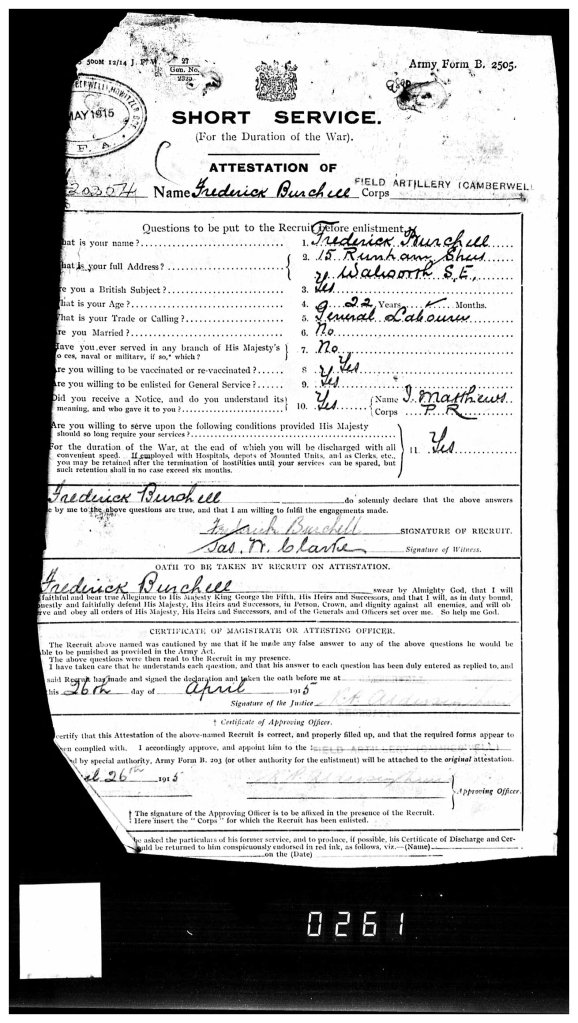 500M 12/14 J. P.
27
Gen. No.
Army Form B. 2505.
MAY 1915
F. A.
SHORT SERVICE.
(For the Duration of the War).
ATTESTATION OF
20304 Name Frederick Burchell Corps FIELD ARTILLERY (CAMBERWELL
Questions to be put to the Recruit before enlistment.
hat is your name? 1. Frederick Burchell
hat is your full Address? 2. 15,
Walworth S.E.
re you a British Subject? 3. Yes
hat is your Age? 4. 22 Years Months.
hat is your Trade or Calling? 5. General Labourer
re you Married? 6. No
Have you ever served in any branch of His Majesty's
o ces, naval or military, if so,* which? 7. No
Are you willing to be vaccinated or re-vaccinated? 8 Yes
Are you willing to be enlisted for General Service? 9. Yes
Did you receive a Notice, and do you understand its
meaning, and who gave it to you? 10. Yes Name Matthews
Corps
Are you willing to serve upon the following conditions provided His Majesty
should so long require your services? 11. Yes
For the duration of the War, at the end of which you will be discharged with all
convenient speed. If employed with Hospitals, depots of Mounted Units, and as Clerks, etc.,
you may be retained after the termination of hostilities until your services can be spared, but
such retention shall in no case exceed six months.
Frederick Burchell do solemnly declare that the above answers
e by me to the above questions are true, and that I am willing to fulfil the engagements made.
Frederick Burchell SIGNATURE OF RECRUIT.
Jas. W. Clarke Signature of Witness.
OATH TO BE TAKEN BY RECRUIT ON ATTESTATION.
Frederick Burchell swear by Almighty God, that I will
faithful and bear true Allegiance to His Majesty King George the Fifth, His Heirs and Successors, and that I will, as in duty bound,
onestly and faithfully defend His Majesty, His Heirs and Successors, in Person, Crown, and dignity against all enemies, and will ob
rve and obey all orders of His Majesty, His Heirs and Successors, and of the Generals and Officers set over me. So help me God.
CERTIFICATE OF MAGISTRATE OR ATTESTING OFFICER.
The Recruit above named was cautioned by me that if he made any false answer to any of the above questions he would be
able to be punished as provided in the Army Act.
The above questions were then read to the Recruit in my presence.
I have taken care that he understands each question, and that his answer to each question has been duly entered as replied to, and
said Recruit has made and signed the declaration and taken the oath before me at
his 26th day of April 1915
Signature of the Justice
† Certificate of Approving Officer.
certify that this Attestation of the above-named Recruit is correct, and properly filled up, and that the required forms appear to
en complied with. I accordingly approve, and appoint him to the ‡ FIELD ARTILLERY
d by special authority, Army Form B. 203 (or other authority for the enlistment) will be attached to the original attestation.
26th 1915
Approving Officer.
† The signature of the Approving Officer is to be affixed in the presence of the Recruit.
‡ Here insert the "Corps" for which the Recruit has been enlisted.
be asked the particulars of his former service, and to produce, if possible, his Certificate of Discharge and Cer-
ould be returned to him conspicuously endorsed in red ink, as follows, viz.—(Name)
on the (Date)
0261